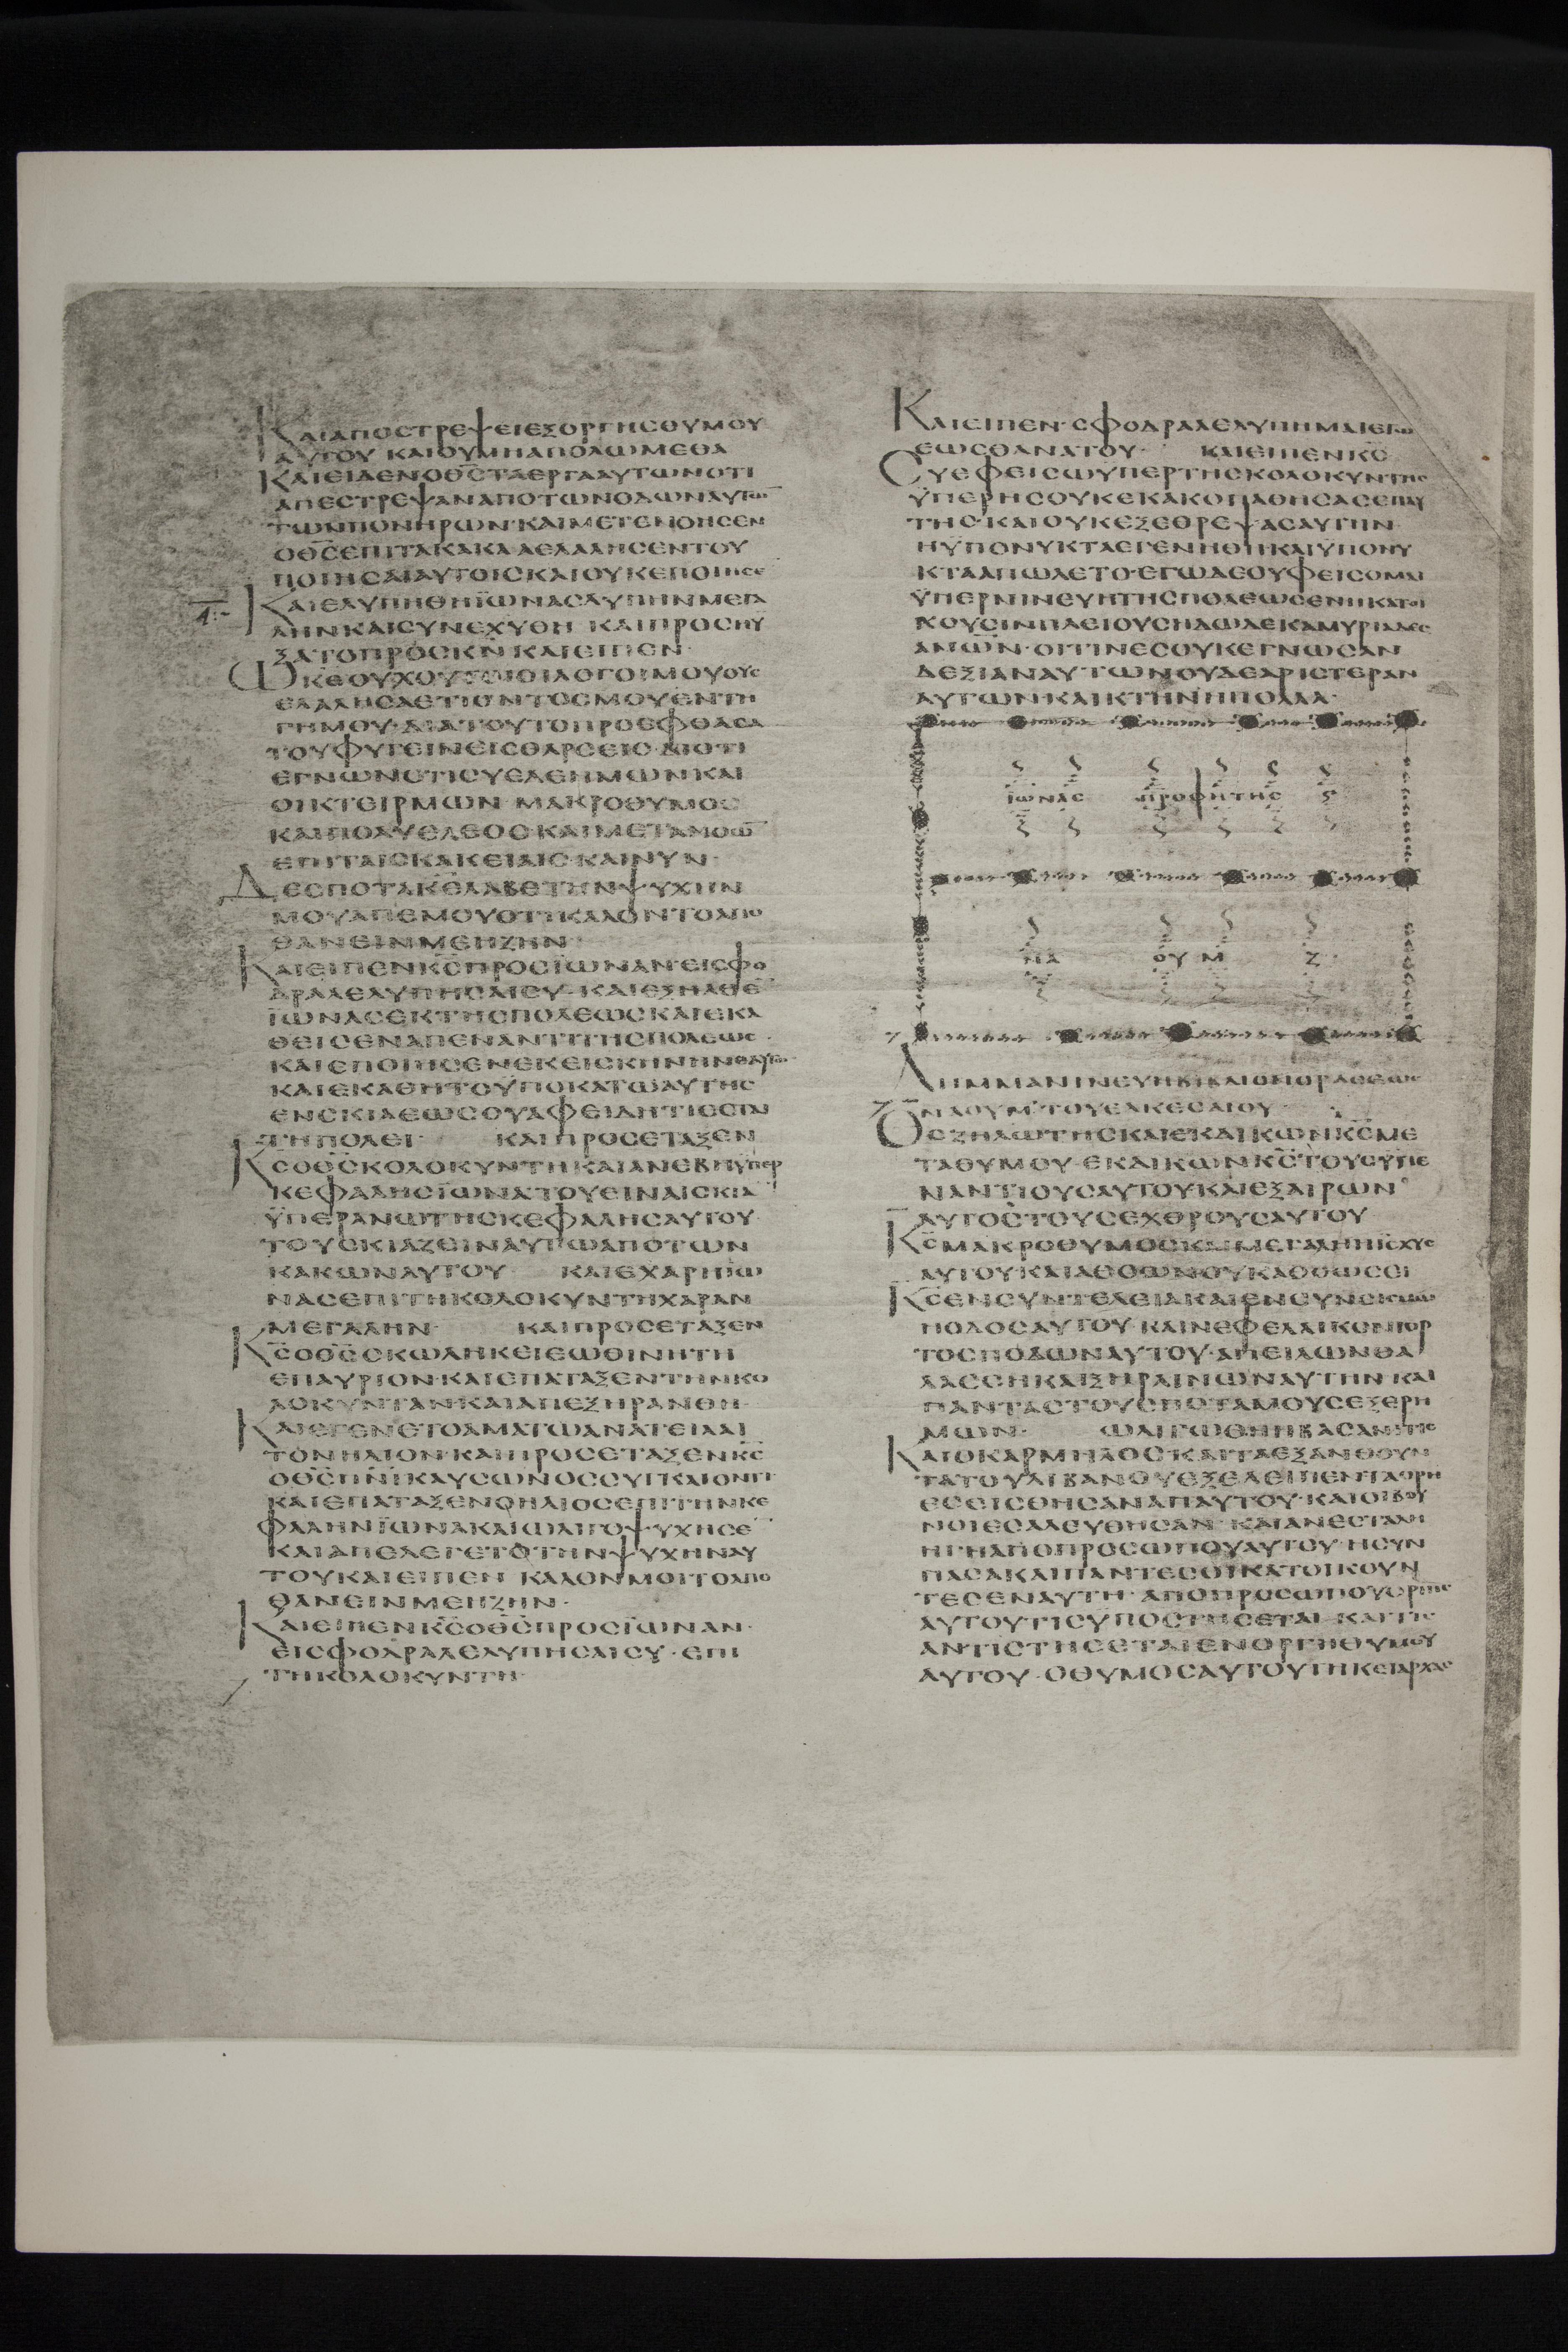 ΚΑΙΑΠΟΣΤΡΕΨΕΙΕΞΟΡΓΗΣΘΥΜΟΥ
ΑΥΤΟΥ ΚΑΙΟΥΜΗΑΠΟΛΩΜΕΘΑ
ΚΑΙΕΙΔΕΝΟΘΣΤΑΕΡΓΑΑΥΤΩΝΟΤΙ
ΑΠΕΣΤΡΕΨΑΝΑΠΟΤΩΝΟΔΩΝΑΥΤΩ̅
ΤΩΝΠΟΝΗΡΩΝ·ΚΑΙΜΕΤΕΝΟΗΣΕΝ
ΟΘΣΕΠΙΤΑΚΑΚΑ ΑΕΛΑΛΗΣΕΝΤΟΥ
ΠΟΙΗΣΑΙΑΥΤΟΙΣΚΑΙΟΥΚΕΠΟΙΗΣΕ̅
ΚΑΙΕΛΥΠΗΘΗΪΩΝΑΣΛΥΠΗΝΜΕΓΑ
ΛΗΝΚΑΙΣΥΝΕΧΥΘΗ ΚΑΙΠΡΟΣΗΥ
ΞΑΤΟΠΡΟΣΚΝ ΚΑΙΕΙΠΕΝ·
ΩΚΕΟΥΧΟΥΤΟΙΟΙΛΟΓΟΙΜΟΥΟΥΣ
ΕΛΑΛΗΣΑΕΤΙΟΝΤΟΣΜΟΥΕΝΤΗ
ΓΗΜΟΥ·ΔΙΑΤΟΥΤΟΠΡΟΕΦΘΑΣΑ
ΤΟΥΦΥΓΕΙΝΕΙΣΘΑΡΣΕΙΣ·ΔΙΟΤΙ
ΕΓΝΩΝΟΤΙΣΥΕΛΕΗΜΩΝΚΑΙ
ΟΙΚΤΕΙΡΜΩΝ ΜΑΚΡΟΘΥΜΟΣ
ΚΑΙΠΟΛΥΕΛΕΟΣΚΑΙΜΕΤΑΝΟΩ̅
ΕΠΙΤΑΙΣΚΑΚΕΙΑΙΣ·ΚΑΙΝΥΝ·
ΔΕΣΠΟΤΑΚΕΛΑΒΕΤΗΝΨΥΧΗΝ
ΜΟΥΑΠΕΜΟΥΟΤΙΚΑΛΟΝΤΟΑΠΟ
ΘΑΝΕΙΝΜΕΗΖΗΝ
ΚΑΙΕΙΠΕΝΚΣΠΡΟΣΪΩΝΑΝ·ΕΙΣΦΟ
ΔΡΑΛΕΛΥΠΗΣΑΙΣΥ·ΚΑΙΕΞΗΛΘΕ̅
ΪΩΝΑΣΕΚΤΗΣΠΟΛΕΩΣΚΑΙΕΚΑ
ΘΕΙΣΕΝΑΠΕΝΑΝΤΙΤΗΣΠΟΛΕΩΣ·
ΚΑΙΕΠΟΙΗΣΕΝΕΚΕΙΣΚΗΝΗΝ
ΚΑΙΕΚΑΘΗΤΟΫΠΟΚΑΤΩΑΥΤΗΣ
ΕΝΣΚΙΑΕΩΣΟΥΑΦΕΙΔΗΤΙΕΣΤΑΙ
ΤΗΠΟΛΕΙ· ΚΑΙΠΡΟΣΕΤΑΞΕΝ
ΚΣΟΘΣΚΟΛΟΚΥΝΤΗΚΑΙΑΝΕΒΗΫΠΕΡ
ΚΕΦΑΛΗΣΪΩΝΑΤΟΥΕΙΝΑΙΣΚΙΑ̅
ΫΠΕΡΑΝΩΤΗΣΚΕΦΑΛΗΣΑΥΤΟΥ
ΤΟΥΣΚΙΑΖΕΙΝΑΥΤΩΑΠΟΤΩΝ
ΚΑΚΩΝΑΥΤΟΥ ΚΑΙΕΧΑΡΗΪΩ
ΝΑΣΕΠΙΤΗΚΟΛΟΚΥΝΤΗΧΑΡΑΝ
ΜΕΓΑΛΗΝ· ΚΑΙΠΡΟΣΕΤΑΞΕΝ
ΚΣΟΘΣΣΚΩΛΗΚΕΙΕΩΘΙΝΗΤΗ
ΕΠΑΥΡΙΟΝ·ΚΑΙΕΠΑΤΑΞΕΝΤΗΝΚΟ
ΛΟΚΥΝΤΑΝ·ΚΑΙΑΠΕΞΗΡΑΝΘΗ·
ΚΑΙΕΓΕΝΕΤΟΑΜΑΤΩΑΝΑΤΕΙΛΑΙ
ΤΟΝΗΛΙΟΝ·ΚΑΙΠΡΟΣΕΤΑΞΕΝΚΣ
ΟΘΣΠΝΙΚΑΥΣΩΝΟΣΣΥΓΚΑΙΟΝΤΙ·
ΚΑΙΕΠΑΤΑΞΕΝΟΗΛΙΟΣΕΠΙΤΗΝΚΕ
ΦΑΛΗΝΪΩΝΑΚΑΙΩΛΙΓΟΨΥΧΗΣΕ̅
ΚΑΙΑΠΕΛΕΓΕΤΟΤΗΝΨΥΧΗΝΑΥ
ΤΟΥΚΑΙΕΙΠΕΝ ΚΑΛΟΝΜΟΙΤΟΑΠΟ
ΘΑΝΕΙΝΜΕΗΖΗΝ·
ΚΑΙΕΙΠΕΝΚΣΟΘΣΠΡΟΣΪΩΝΑΝ·
ΕΙΣΦΟΔΡΑΛΕΛΥΠΗΣΑΙΣΥ·ΕΠΙ
ΤΗΚΟΛΟΚΥΝΤΗ·
ΚΑΙΕΙΠΕΝ·ΣΦΟΔΡΑΛΕΛΥΠΗΜΑΙΕΓΩ
ΕΩΣΘΑΝΑΤΟΥ· ΚΑΙΕΙΠΕΝΚΣ
ΣΥΕΦΕΙΣΩΥΠΕΡΤΗΣΚΟΛΟΚΥΝΤΗΣ
ΫΠΕΡΗΣΟΥΚΕΚΑΚΟΠΑΘΗΣΑΣΕΠΑΥ
ΤΗΣ·ΚΑΙΟΥΚΕΞΕΘΡΕΨΑΣΑΥΤΗΝ·
ΗΫΠΟΝΥΚΤΑΕΓΕΝΗΘΗΚΑΙΫΠΟΝΥ
ΚΤΑΑΠΩΛΕΤΟ·ΕΓΩΔΕΟΥΦΕΙΣΟΜΑΙ
ΫΠΕΡΝΙΝΕΥΗΤΗΣΠΟΛΕΩΣΕΝΗΚΑΤΟΙ
ΚΟΥΣΙΝΠΛΕΙΟΥΣΗΔΩΔΕΚΑΜΥΡΙΑΔΕΣ
ΑΝΩΝ·ΟΙΤΙΝΕΣΟΥΚΕΓΝΩΣΑΝ
ΔΕΞΙΑΝΑΥΤΩΝΟΥΔΕΑΡΙΣΤΕΡΑΝ
ΑΥΤΩΝ·ΚΑΙΚΤΗΝΗΠΟΛΛΑ·
ΪΩΝΑΣ ΠΡΟΦΗΤΗΣ Ϛ
ΝΑ ΟΥΜ Ζ
ΛΗΜΜΑΝΙΝΕΥΗΒΙΒΛΙΟΝΟΡΑΣΕΩΣ
ΝΑΟΥΜ·ΤΟΥΕΛΚΕΣΑΙΟΥ
ΘΣΖΗΛΩΤΗΣΚΑΙΕΚΔΙΚΩΝΚΣΜΕ
ΤΑΘΥΜΟΥ·ΕΚΔΙΚΩΝΚΣΤΟΥΣΫΠΕ
ΝΑΝΤΙΟΥΣΑΥΤΟΥΚΑΙΕΞΑΙΡΩΝ
ΑΥΤΟΣΤΟΥΣΕΧΘΡΟΥΣΑΥΤΟΥ
ΚΣΜΑΚΡΟΘΥΜΟΣΚΑΙΜΕΓΑΛΗΗΪΣΧΥΣ
ΑΥΤΟΥ·ΚΑΙΑΘΟΩΝΟΥΚΑΘΟΩΣΕΙ
ΚΣΕΝΣΥΝΤΕΛΕΙΑΚΑΙΕΝΣΥΝΣΙΣΜΩ
ΗΟΔΟΣΑΥΤΟΥ·ΚΑΙΝΕΦΕΛΑΙΚΟΝΙΟΡ
ΤΟΣΠΟΔΩΝΑΥΤΟΥ·ΑΠΕΙΛΩΝΘΑ
ΛΑΣΣΗΚΑΙΞΗΡΑΙΝΩΝΑΥΤΗΝ·ΚΑΙ
ΠΑΝΤΑΣΤΟΥΣΠΟΤΑΜΟΥΣΕΞΕΡΗ
ΜΩΝ· ΩΛΙΓΩΘΗΗΒΑΣΑΝΙΤΙΣ
ΚΑΙΟΚΑΡΜΗΛΟΣΚΑΙΤΑΕΞΑΝΘΟΥΝ
ΤΑΤΟΥΛΙΒΑΝΟΥΕΞΕΛΕΙΠΕΝΤΑΟΡΗ
ΕΣΕΙΣΘΗΣΑΝΑΠΑΥΤΟΥ·ΚΑΙΟΙΒΟΥ
ΝΟΙΕΣΑΛΕΥΘΗΣΑΝ·ΚΑΙΑΝΕΣΤΑΛΗ
ΗΓΗΑΠΟΠΡΟΣΩΠΟΥΑΥΤΟΥ·ΗΣΥΝ
ΠΑΣΑΚΑΙΠΑΝΤΕΣΟΙΚΑΤΟΙΚΟΥΝ
ΤΕΣΕΝΑΥΤΗ·ΑΠΟΠΡΟΣΩΠΟΥΟΡΓΗΣ
ΑΥΤΟΥΤΙΣΥΠΟΣΤΗΣΕΤΑΙ·ΚΑΙΤΙΣ
ΑΝΤΙΣΤΗΣΕΤΑΙΕΝΟΡΓΗΘΥΜΟΥ
ΑΥΤΟΥ·ΟΘΥΜΟΣΑΥΤΟΥΤΗΚΕΙΑΡΧΑΣ